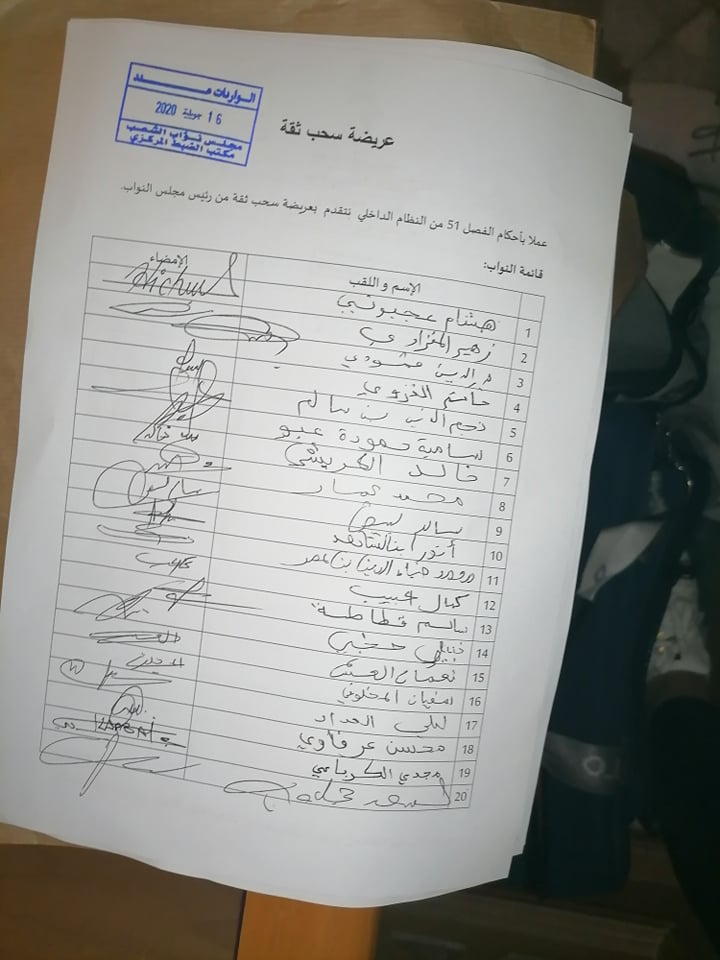 الواردات عـــدد
16 جويلية 2020
مجلس نواب الشعب
مكتب الضبط المركزي
عريضة سحب ثقة
عملا بأحكام الفصل 51 من النظام الداخلي نتقدم بعريضة سحب ثقة من رئيس مجلس النواب.
قائمة النواب:
الإسم و اللقب الإمضاء
1 هشام عجبوني
2 زهير المغزاوي
3
4 حاتم
5 نجم الدين بن سالم
6 سامية حمودة عبو
7 خالد الكريشي
8 محمد عمار
9 سالم لبيض
10 أنور بالشاهد
11
12 كمال
13 سالم قطاطة
14 نبيل حجي
15 نعمان العش
16 سفيان المخلوفي
17 ليلى الحداد
18 محسن عرفاوي
19 مجدي الكرباعي
20